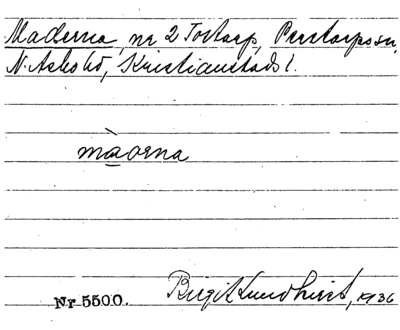 Maderna, nr 2 Tostarp, Perstorps sn,
N. Åsbo hd, Kristianstads l.
màðerna
Nr 5500. Birgit Lundkvist, 1936